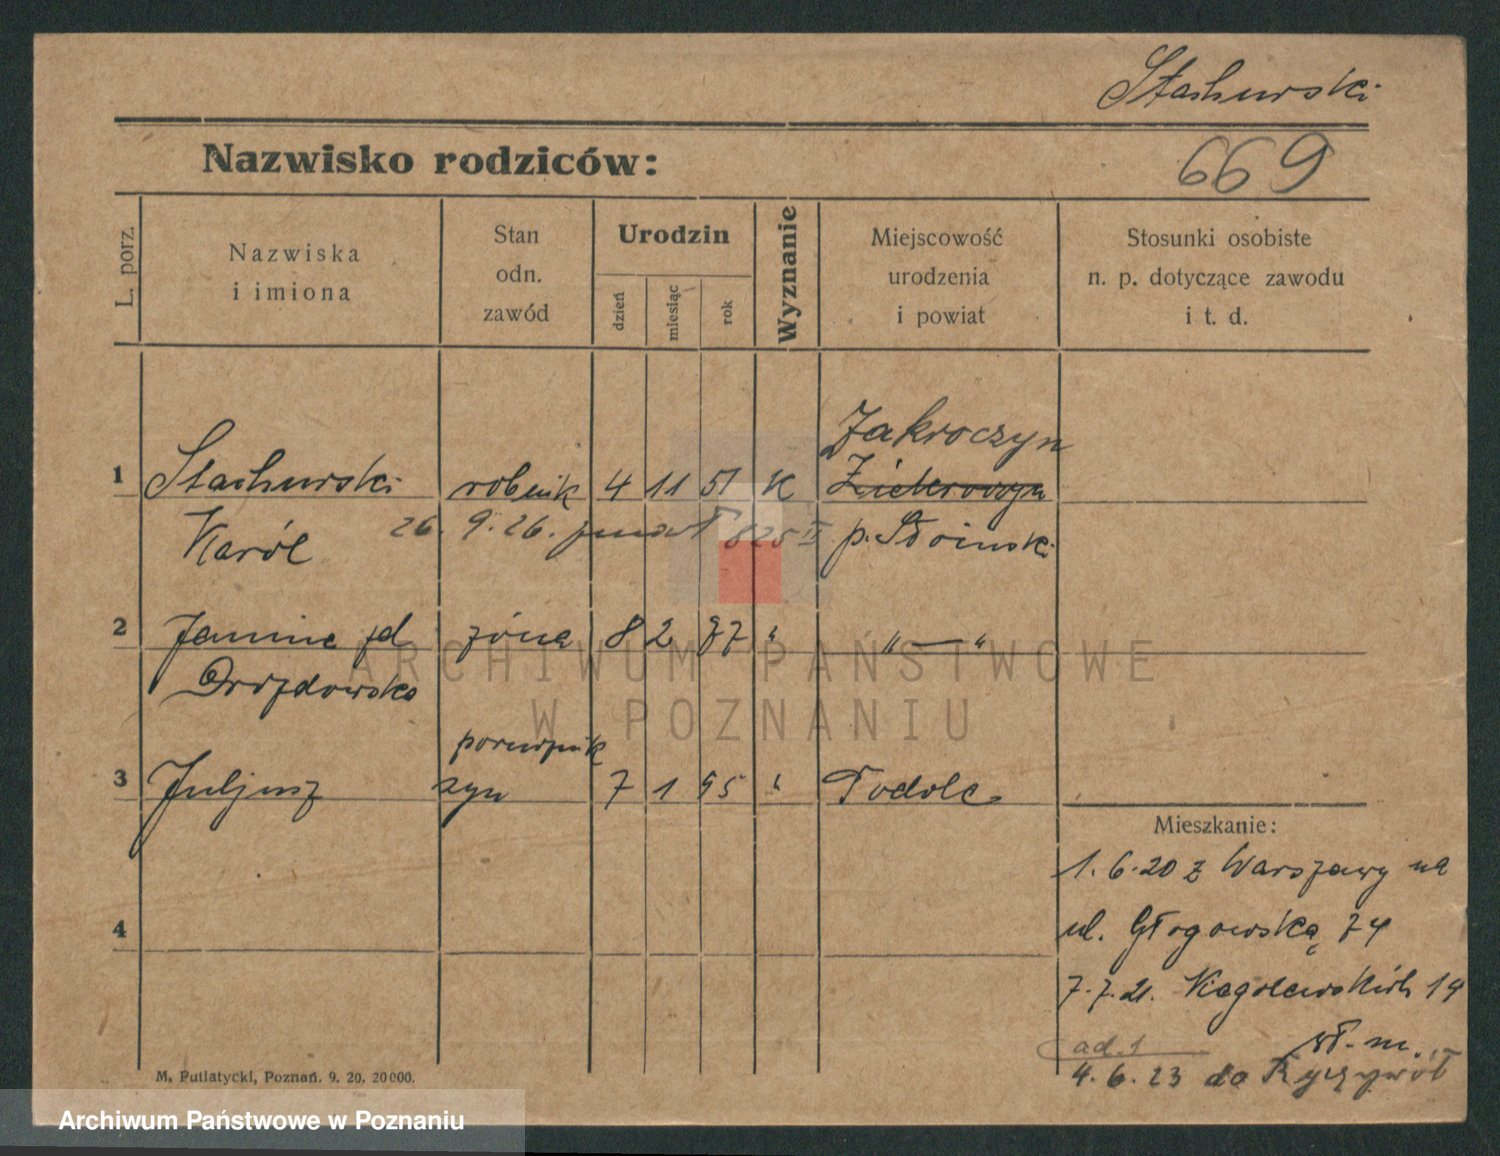 Stachurski
Nazwisko rodziców:
669
L. porz.
Nazwiska
i imiona
Stan
odn.
zawód
Urodzin
dzień
miesiąc
rok
Wyznanie
Miejscowość
urodzenia
i powiat
Stosunki osobiste
n. p. dotyczące zawodu
i t. d.
Zakroczyn
1 Stachurski robotnik 4 11 51 K
Karól 26. 9. 26. zmarł p. Płoński
2 Janina zd żona 8 2 77 " "—"
Drozdowska
porucznik
3 Juljusz syn 7 1 95 " Podole
4
Mieszkanie:
1. 6. 20 z Warszawy na
ul. Głogowską 74
7. 7. 21. Niegolewskich 14
wł. m.
ad. 1
4. 6. 23 do Ryczywół
M. Putiatycki, Poznań. 9. 20. 20000.
ARCHIWUM PAŃSTWOWE
W POZNANIU
Archiwum Państwowe w Poznaniu